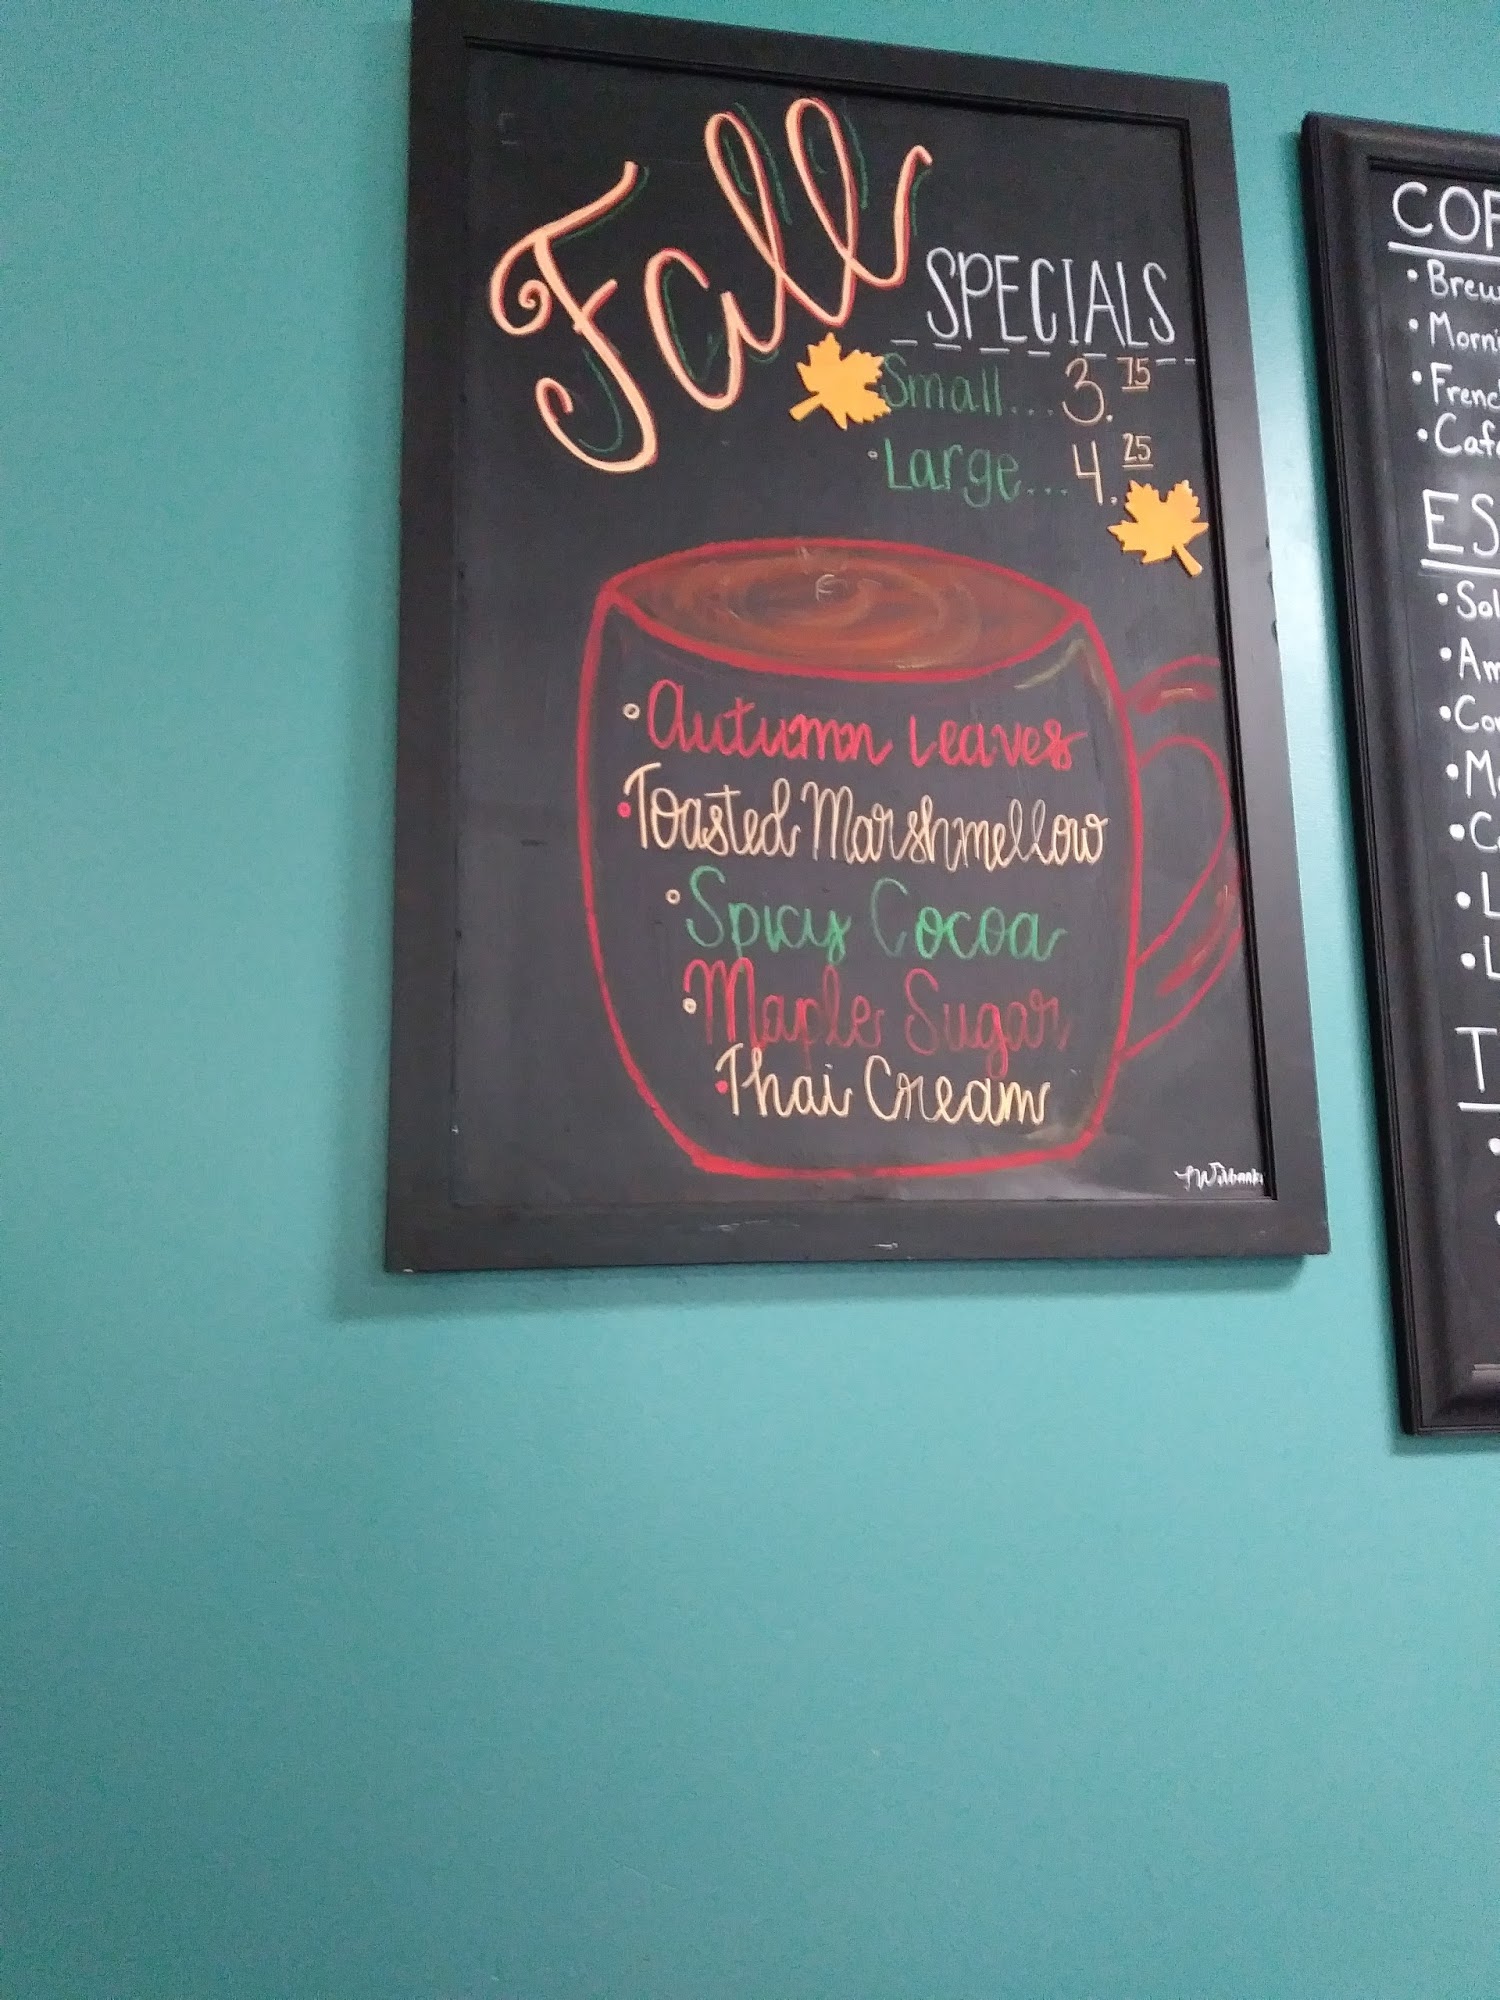 Fall
SPECIALS
Small... 3.75
Large... 4.25
Autumn Leaves
Toasted Marshmellow
Spicy Cocoa
Maple Sugar
Thai Cream
• Brew
• Morni
• Frenc
• Caf
ES
• Sol
• Am